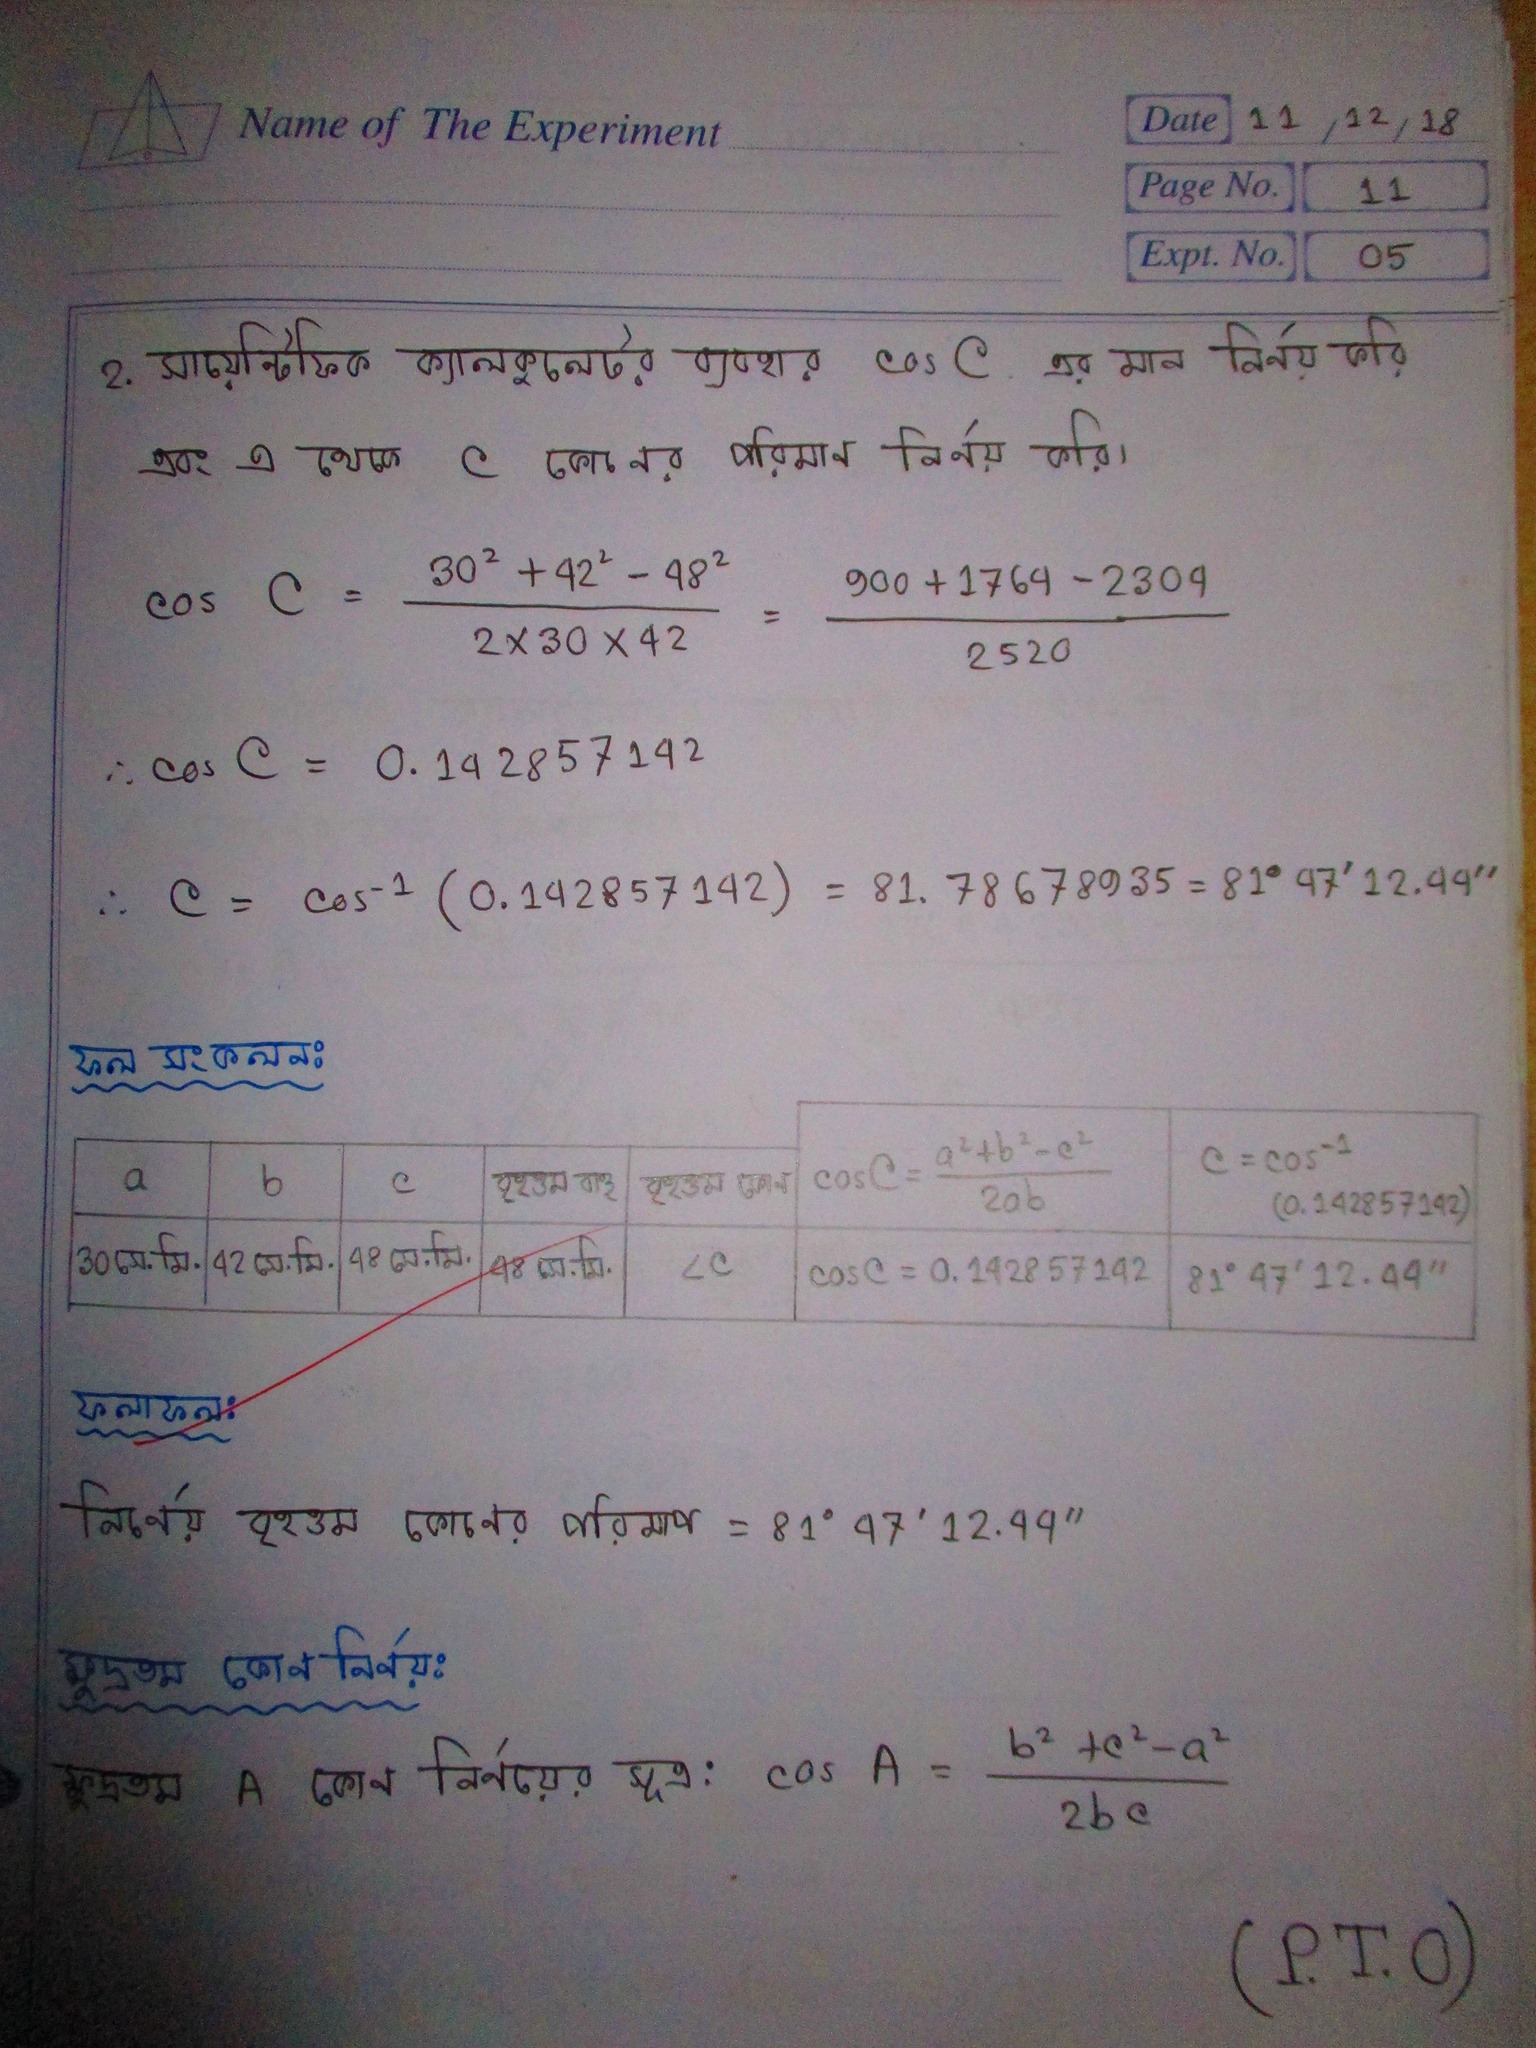 Name of The Experiment
Date 11/12/18
Page No. 11
Expt. No. 05
2. সায়েন্টিফিক ক্যালকুলেটর ব্যবহার cos C এর মান নির্নয় করি
এবং এ থেকে C কোনের পরিমান নির্নয় করি।
cos C = (30² + 42² - 48²) / (2×30×42) = (900 + 1764 - 2304) / 2520
∴ cos C = 0.142857142
∴ C = cos⁻¹ (0.142857142) = 81.78678935 = 81° 47' 12.44"
ফল সংকলনঃ
a b c বৃহত্তম বাহু বৃহত্তম কোন cosC = (a²+b²-c²) / 2ab C = cos⁻¹ (0.142857142)
30 সে.মি. 42 সে.মি. 48 সে.মি. 48 সে.মি. ∠C cosC = 0.142857142 81° 47' 12.44"
ফলাফলঃ
নির্নেয় বৃহত্তম কোনের পরিমাপ = 81° 47' 12.44"
ক্ষুদ্রতম কোন নির্নয়ঃ
ক্ষুদ্রতম A কোন নির্নয়ের সূত্র: cos A = (b² + c² - a²) / 2bc
(P.T.O)